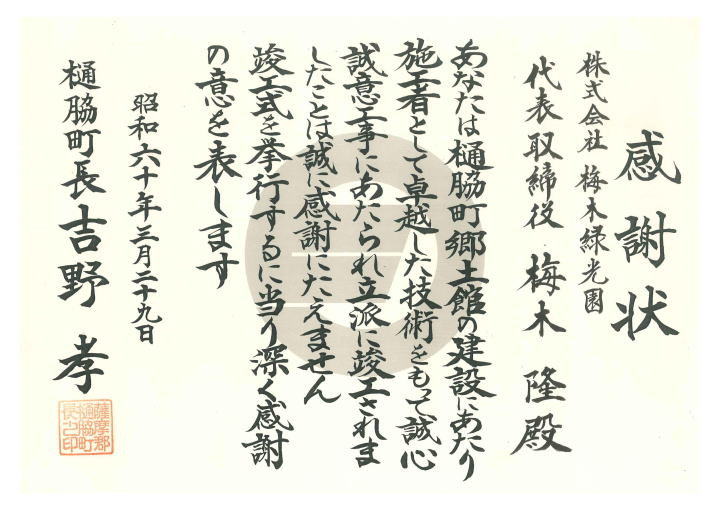 感謝状
株式会社 梅木緑光園
代表取締役 梅木 隆殿
あなたは樋脇町郷土館の建設にあたり
施工者として卓越した技術をもって誠心
誠意工事にあたられ立派に竣工されま
したことは誠に感謝にたえません
竣工式を挙行するに当り深く感謝
の意を表します
昭和六十年三月二十九日
樋脇町長 吉野 孝
薩摩郡
樋脇町
長之印